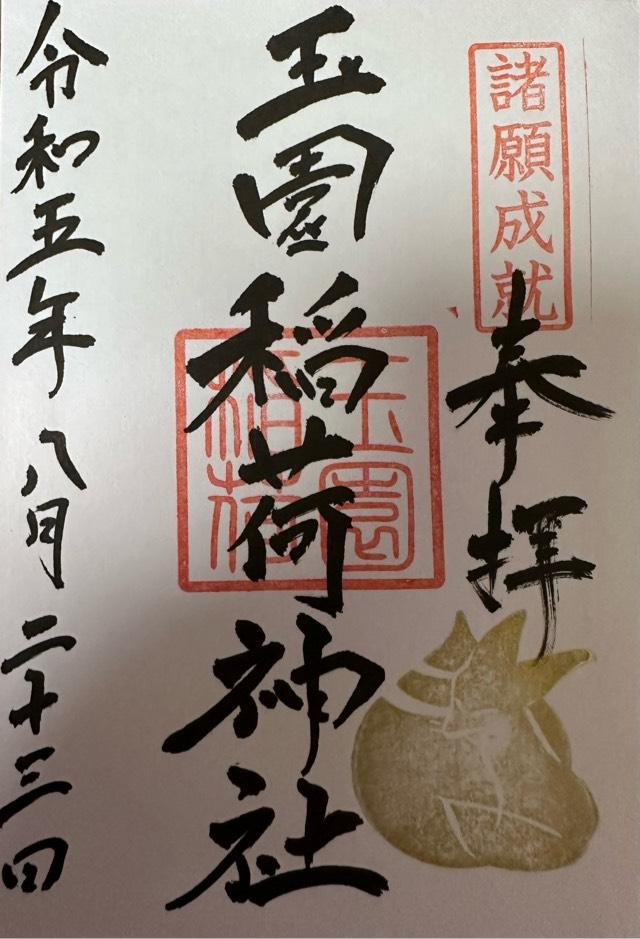 諸願成就
奉拝
玉園稲荷神社
玉園
稲荷
令和五年八月二十三日